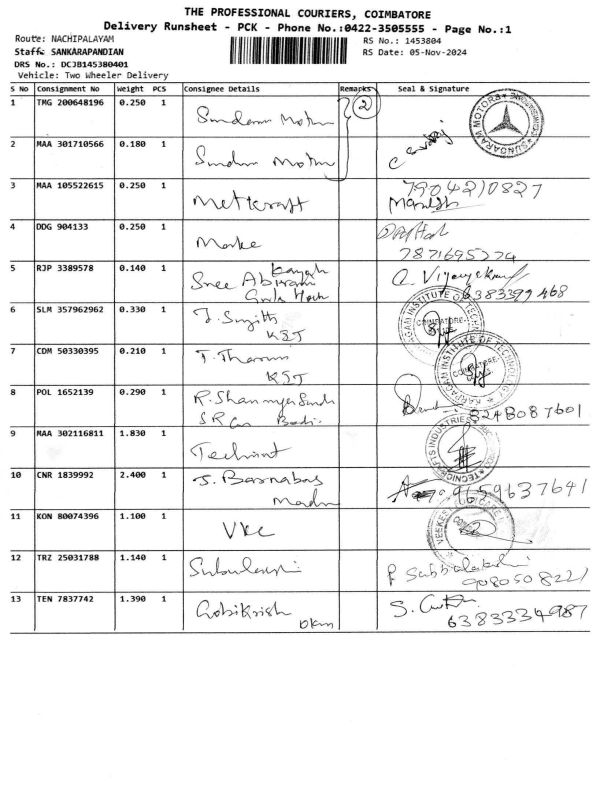 THE PROFESSIONAL COURIERS, COIMBATORE
Delivery Runsheet - PCK - Phone No.:0422-3505555 - Page No.:1
Route: NACHIPALAYAM
RS No.: 1453804
Staff: SANKARAPANDIAN
RS Date: 05-Nov-2024
DRS No.: DCJB145380401
Vehicle: Two Wheeler Delivery
S No Consignment No Weight PCS Consignee Details Remarks Seal & Signature
1 TMG 200648196 0.250 1 Sundaram Motors 2 SUNDARAM MOTORS
2 MAA 301710566 0.180 1 Sundaram Motors
3 MAA 105522615 0.250 1 Mettcraft 7904210827
Manish
4 DDG 904133 0.250 1 Marke
7871695774
5 RJP 3389578 0.140 1 Sree Abirami
6383399468
6 SLM 357962962 0.330 1 J. Sujith
KIT COIMBATORE
7 CDM 50330395 0.210 1 T. Tharun
KIT KARPAGAM INSTITUTE OF TECHNOLOGY COIMBATORE
8 POL 1652139 0.290 1 R. Shanmuga
S R 8248087601
9 MAA 302116811 1.830 1 TECNICRAFTS INDUSTRIES
10 CNR 1839992 2.400 1 J. Barnabas
9659637641
11 KON 80074396 1.100 1 VKC VEEKESY
12 TRZ 25031788 1.140 1 Subbulakshmi P Subbulakshmi
9080508221
13 TEN 7837742 1.390 1 Gobikrish
6383334987